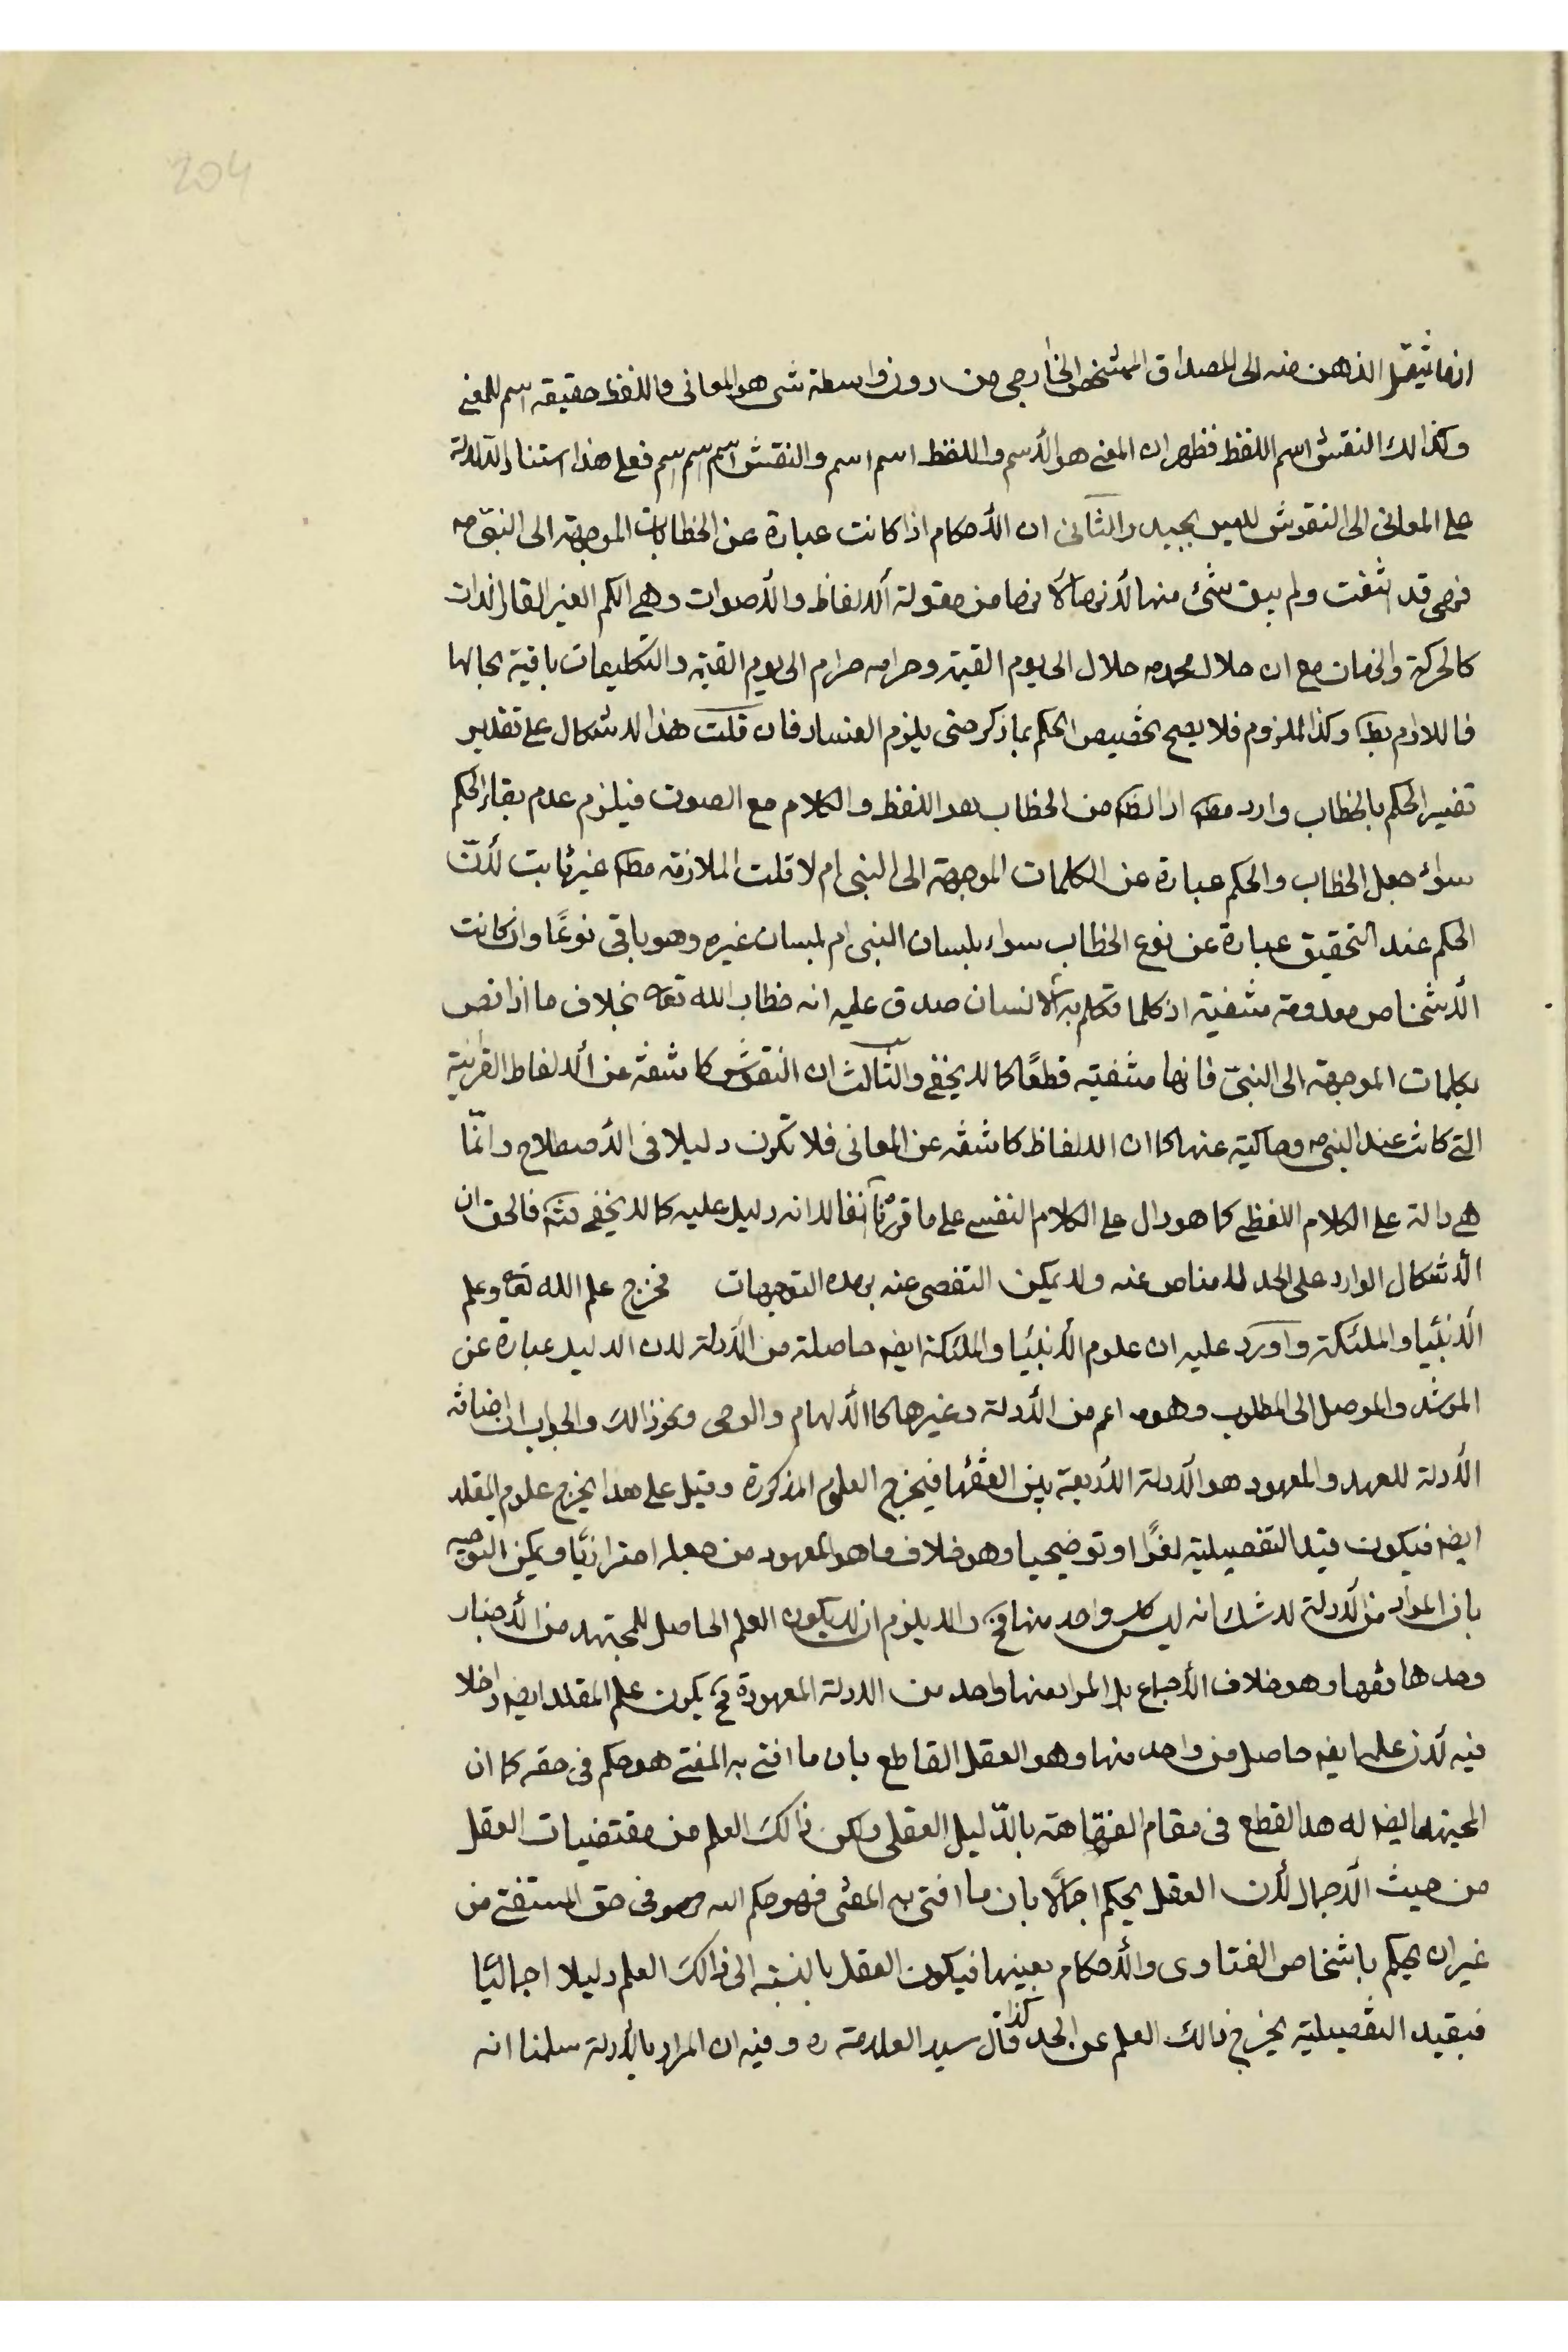 204
انما ينتقل الذهن منه الى المصداق المشخص الخارجى من دون واسطة شى هو المعانى واللفظ حقيقة اسم للمعنى
وكذالك النقش اسم اللفظ فظهر ان المعنى هو الأسم واللفظ اسم اسم والنقش اسم اسم اسم فعلى هذا استناد الدلالة
على المعانى الى النقوش لليس بجيد والثانى ان الأحكام اذا كانت عبارة عن الخطابات الموجهة الى النبى ص
فهى قد انتفت ولم يبق شئ منها لأنها من مقولة الألفاظ والأصوات وهى الكم الغير القار الذات
كالحركة والزمان مع ان حلال محمد ص حلال الى يوم القيمة وحرامه حرام الى يوم القيمة والتكليفات باقية بحالها
فاللازم بط وكذا الملزوم فلا يصح تخصيص الحكم بما ذكر حتى يلزم الفساد فان قلت هذا الاشكال على تقدير
تفسير الحكم بالخطاب وارد مط اذ الظ من الخطاب هو اللفظ والكلام مع الصوت فيلزم عدم بقاء الحكم
سواء جعل الخطاب والحكم عبارة عن الكلمات الموجهة الى النبى ام لا قلت الملازمة مط غير ثابت لأن
الحكم عند التحقيق عبارة عن نوع الخطاب سواء بلسان النبى ام بلسان غيره وهو باقى نوعًا وان كانت
الأشخاص معدومة منتفية اذ كلما تكلم به الانسان صدق عليه انه خطاب الله تعه بخلاف ما اذا نص
بكلمات الموجهة الى النبى فانها منتفية قطعًا كما لا يخفى والثالث ان النقوش كاشفة عن الألفاظ القرانية
التى كانت عند النبى ص وحاكية عنها كما ان الالفاظ كاشفة عن المعانى فلا تكون دليلا فى الأصطلاح وانّما
هى دالة على الكلام اللفظى كما هو دال على الكلام النفسى على ما قررنا آنفا لا انه دليل عليه كما لا يخفى فالحق ان
الأشكال الوارد على الحد لا مناص عنه ولا يمكن التفصى عنه بهذه التوجيهات فخرج علم الله تعه وعلم
الأنبياء والملئكة واورد عليه ان علوم الأنبياء والملئكة ايض حاصلة من الأدلة لان الدليل عبارة عن
المرشد والموصل الى المطلوب وهو اعم من الأدلة وغيرها كا الألهام والوحى ونحو ذالك والجواب ان اضافة
الأدلة للعهد والمعهود هو الأدلة الأربعة بين الفقهاء فيخرج العلوم المذكورة وقيل على هذا يخرج علوم المقلد
ايض فيكون قيد التفصيلية لغوًا او توضيحيا وهو خلاف ما هو المعهود من جعله احترازيًا ويمكن التوجيه
بان المراد من الأدلة لا شك انه ليس كل واحد منها والا يلزم ان لا يكون العلم الحاصل للمجتهد من الأخبار
وحدها فقها وهو خلاف الأجماع بل المراد منها واحد من الادلة المعهودة فح يكون علم المقلد ايض داخلا
فيه لأن علمه ايض حاصل من واحد منها وهو العقل القاطع بان ما افتى به المفتى هو حكم فى حقه كما ان
المجتهد ايض له هذا القطع فى مقام الفقاهة بالدّليل العقلى ولكن ذالك العلم من مقتضيات العقل
من حيث الأجمال لأن العقل يحكم اجمالًا بان ما افتى به المفتى فهو حكم الله وهو فى حق المستفتى من
غير ان يحكم باشخاص الفتاوى والأحكام بعينها فيكون العقل بالنسبة الى ذالك العلم دليلا اجماليًا
فبقيد التفصيلية يخرج ذالك العلم عن الحد كذا قال سيد العلامة ره وفيه ان المراد بالأدلة سلمنا انه